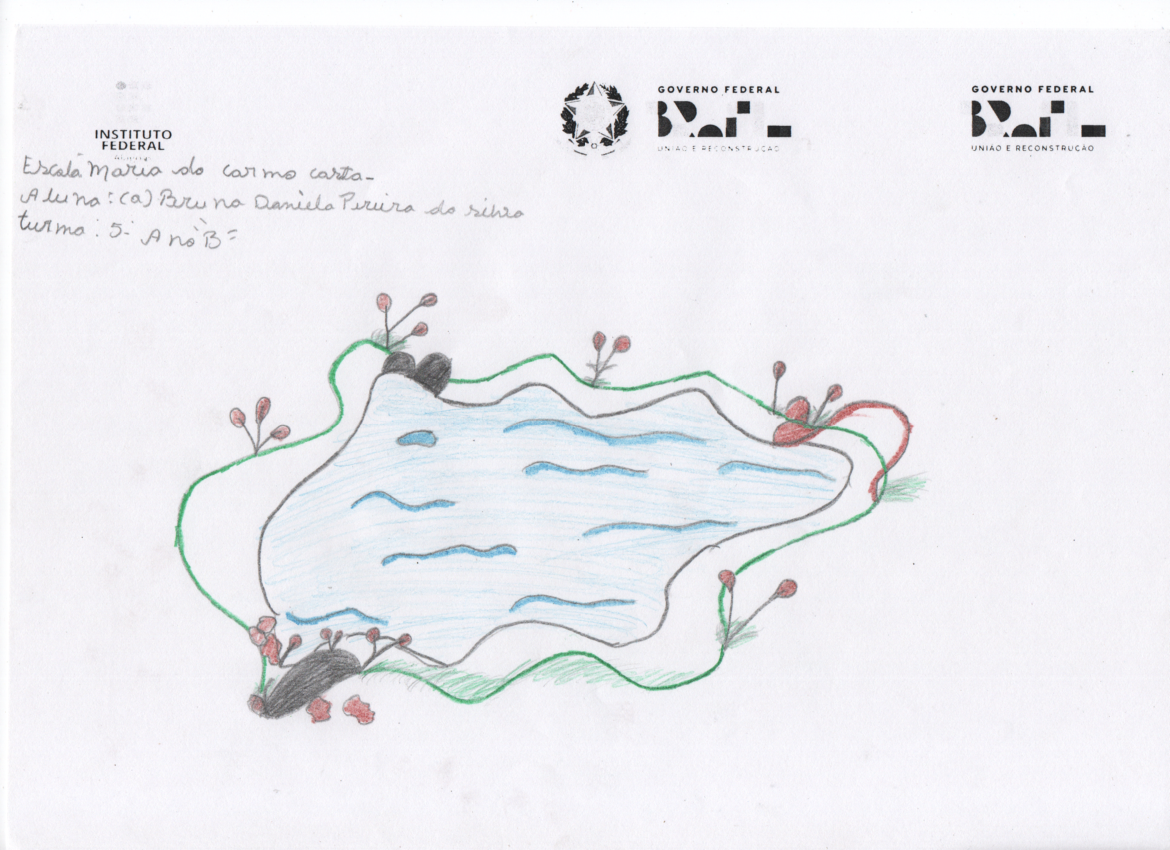 INSTITUTO
FEDERAL
GOVERNO FEDERAL
BRASIL
UNIÃO E RECONSTRUÇÃO
GOVERNO FEDERAL
BRASIL
UNIÃO E RECONSTRUÇÃO
Escola Maria do carmo casta-
Aluna: (a) Bruna Daniela Pereira da silva
turma: 5- Ano B=